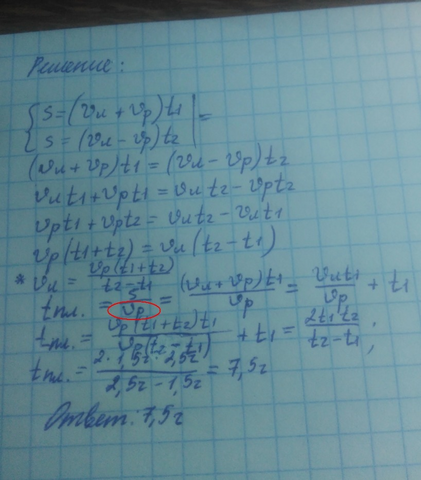 Решение:
{ S = (vл + vр)t1 | =
{ S = (vл - vр)t2
(vл + vр)t1 = (vл - vр)t2
vлt1 + vрt1 = vлt2 - vрt2
vрt1 + vрt2 = vлt2 - vлt1
vр(t1 + t2) = vл(t2 - t1)
* vл = vр(t1+t2)/t2-t1
tпл. = S/vр = (vл + vр)t1/vр = vлt1/vр + t1
tпл. = vр(t1+t2)t1/vр(t2-t1) + t1 = 2t1t2/t2-t1;
tпл. = 2·1,5ч·2,5ч/2,5ч-1,5ч = 7,5ч
Ответ: 7,5ч